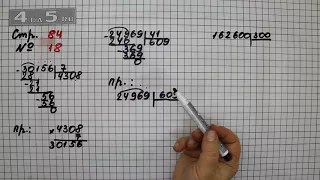 4 АЛ 5.COM
Стр. 84
№ 18
30156 7
28 4308
21
21
56
56
0
пр.: × 4308
7
30156
24969 41
246 609
369
369
0
пр.:
24969 609
162600 300